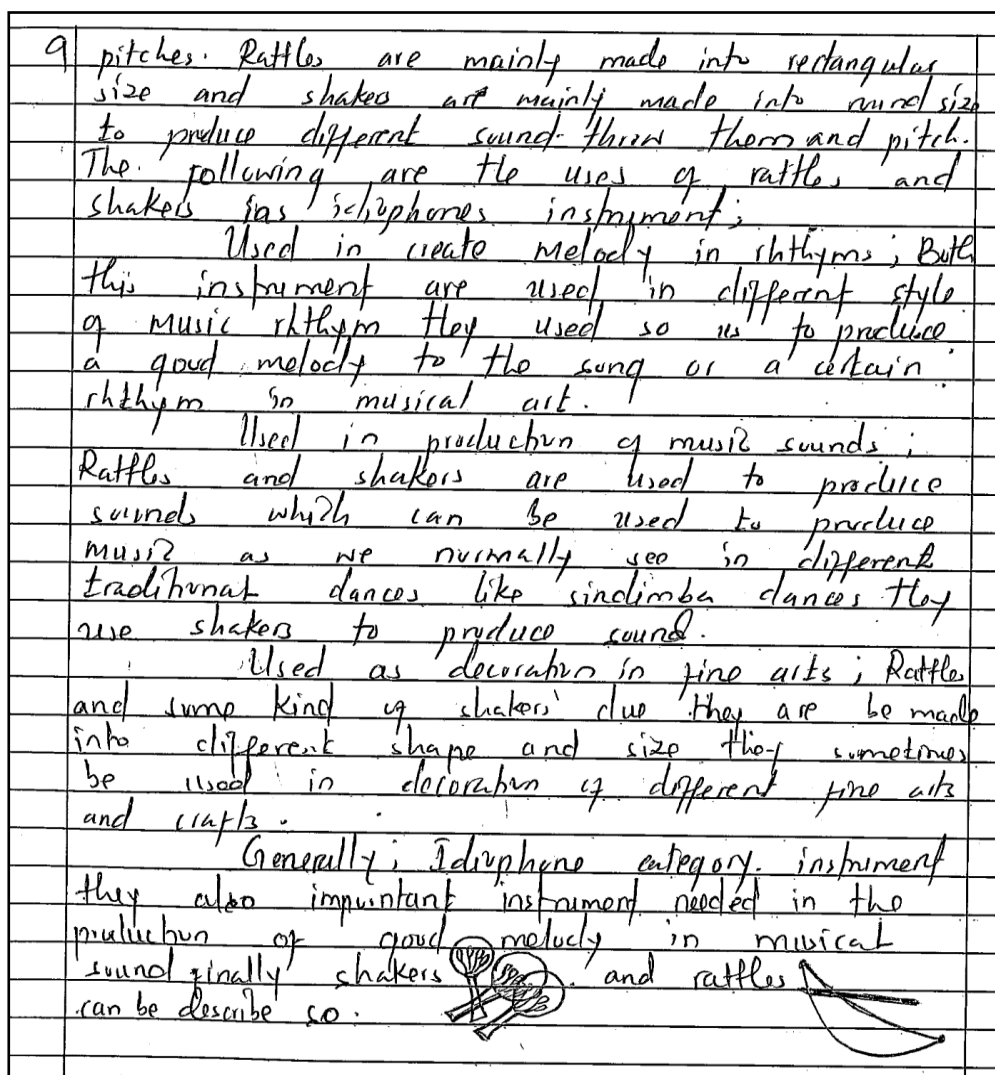 9 pitches. Rattles are mainly made into rectangular
size and shakers are mainly made into round size
to produce different sound throw them and pitch.
The following are the uses of rattles and
shakers as idiophones instrument;
Used in create melody in rhthyms; Both
this instrument are used in different style
of music rhthym they used so as to produce
a good melody to the song or a certain
rhthym in musical art.
Used in production of music sounds;
Rattles and shakers are used to produce
sounds which can be used to produce
music as we normally see in different
traditional dances like sindimba dances they
use shakers to produce sound.
Used as decoration in fine arts; Rattles
and some kind of shakers due they are be made
into different shape and size they sometimes
be used in decoration of different fine arts
and crafts.
Generally; Idiophone category instrument
they also impointant instrument needed in the
production of good melody in musical
sound finally shakers and rattles
can be describe so.